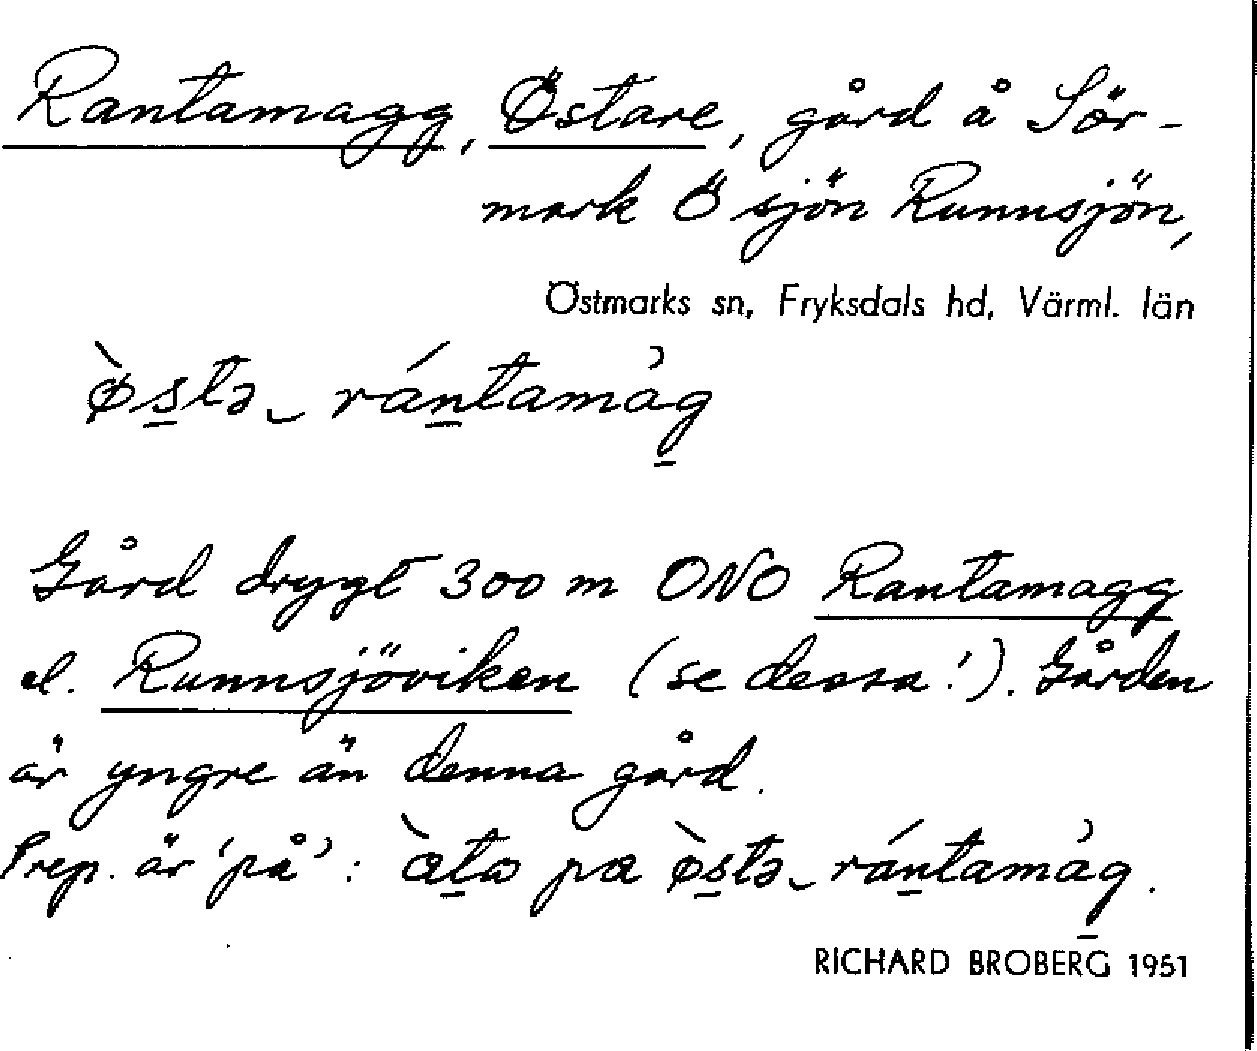 Rantamagg, Östare, gård å Sör-
mark Ö sjön Runnsjön,
Östmarks sn, Fryksdals hd, Värml. län
ø̀s̲tə‿ rán̲tamàg̲
Gård drygt 300 m ONO Rantamagg
el. Runnsjöviken (se dessa!). Gården
är yngre än denna gård.
Prep. är 'på': æ̀t̲a pa ø̀s̲tə‿ rán̲tamàg̲.
RICHARD BROBERG 1951